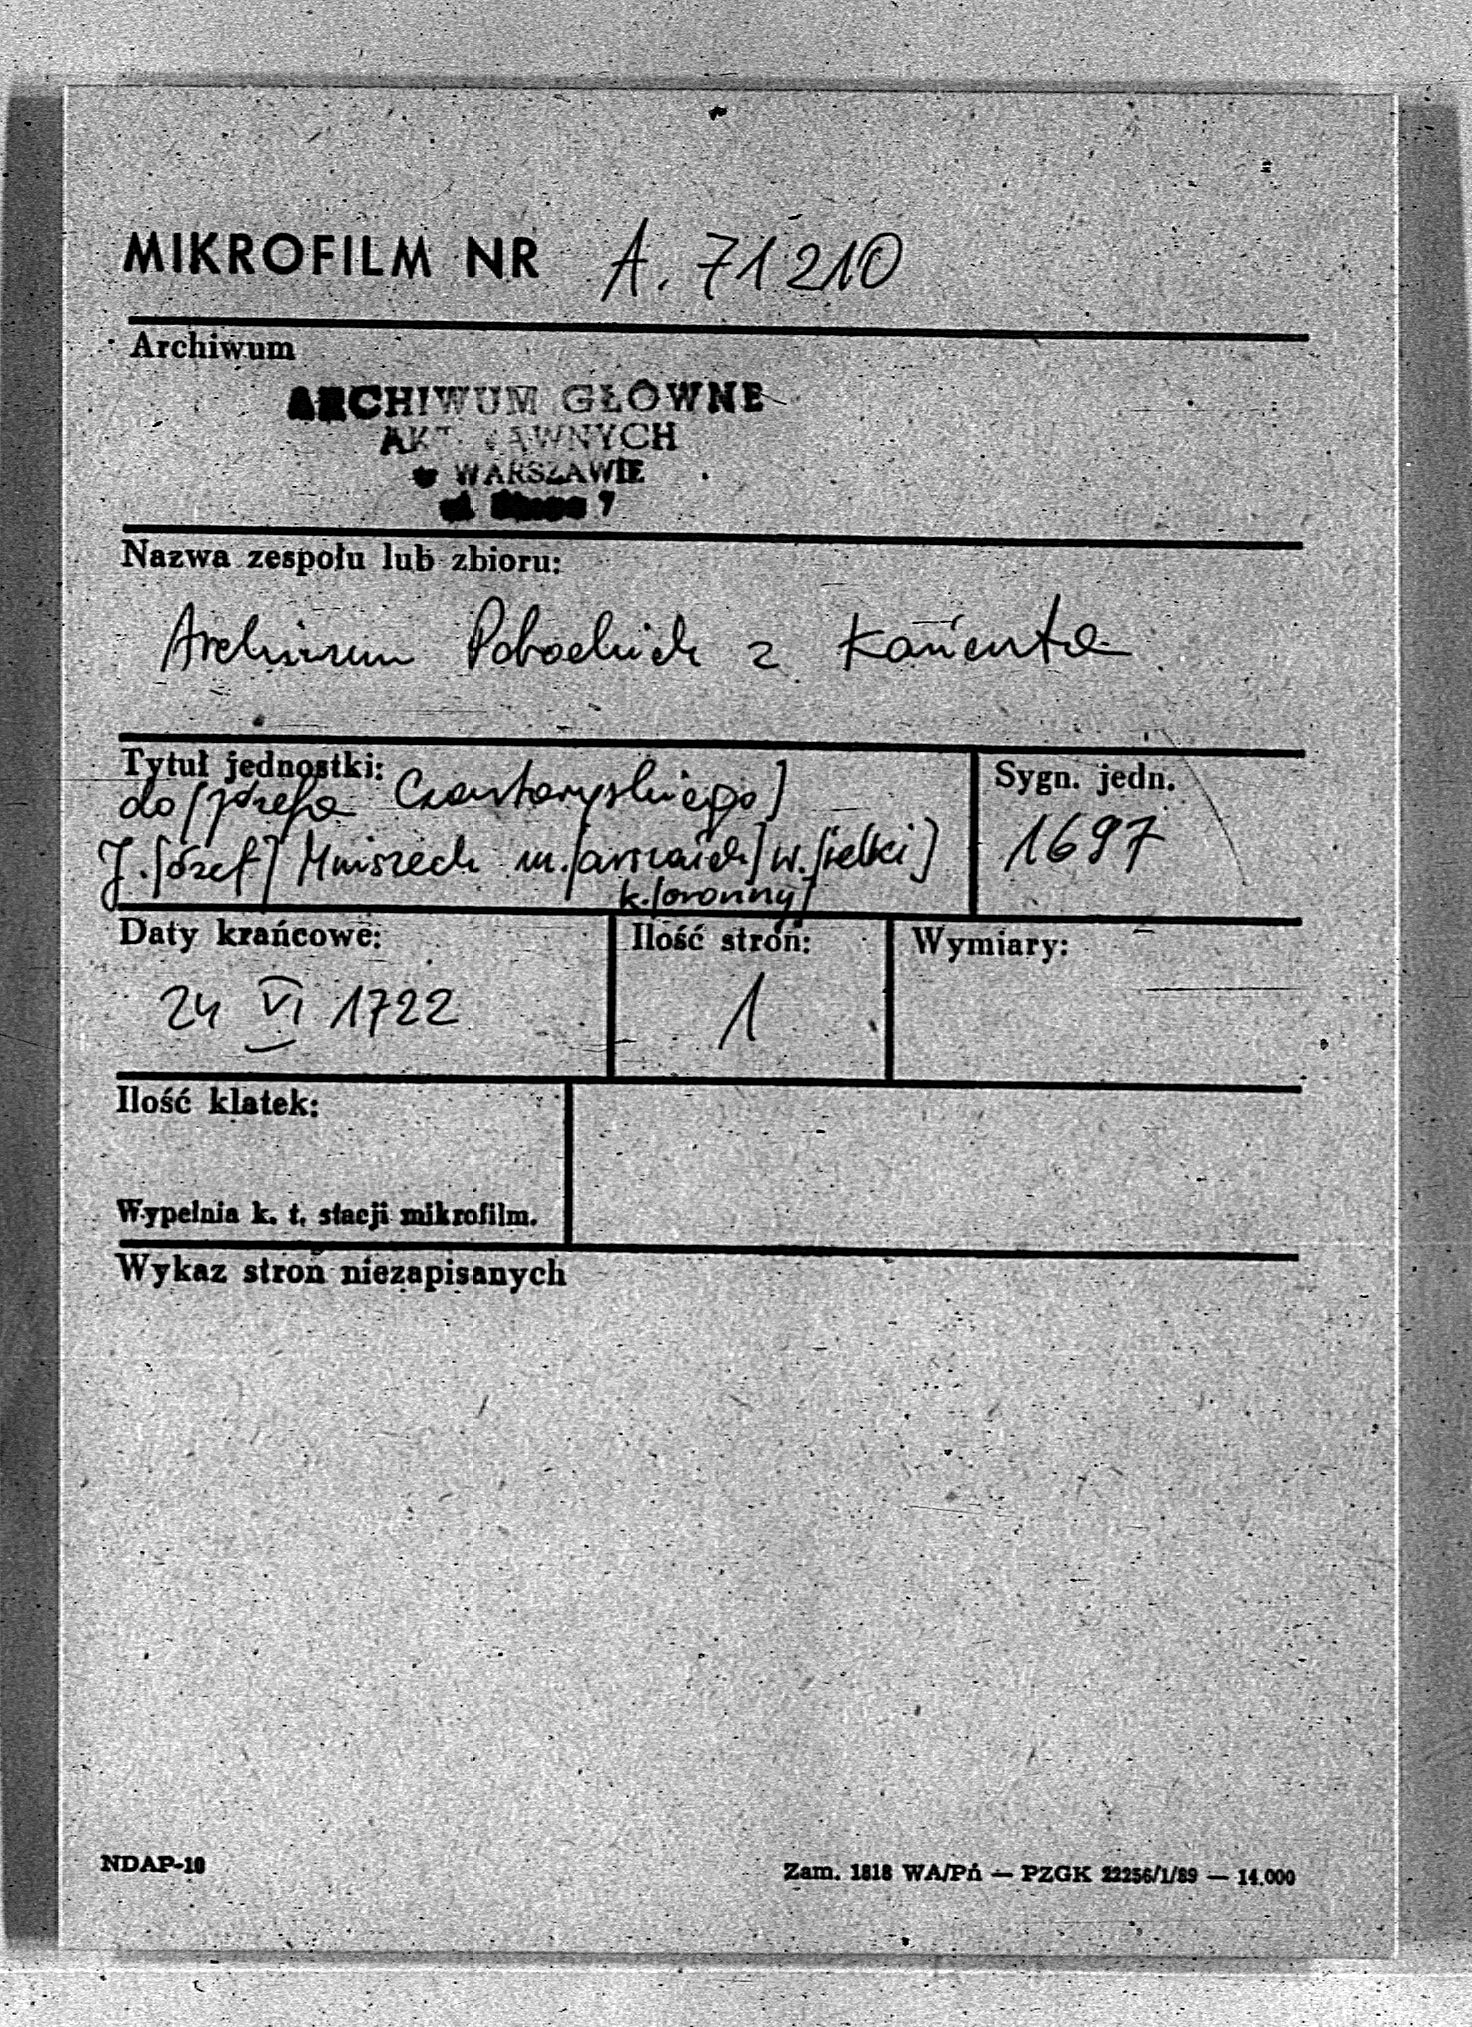 MIKROFILM NR A. 71210
Archiwum
ARCHIWUM GŁÓWNE
AKT DAWNYCH
w WARSZAWIE
ul. 7
Nazwa zespołu lub zbioru:
Archiwum Potockich z Łańcuta
Tytuł jednostki:
do [Józefa Czartoryskiego]
J.[ózef] Mniszech m.[arszałek] w.[ielki]
k.[oronny]
Sygn. jedn.
1697
Daty krańcowe:
24 VI 1722
Ilość stron:
1
Wymiary:
Ilość klatek:
Wypełnia k. t. stacji mikrofilm.
Wykaz stron niezapisanych
NDAP-10
Zam. 1818 WA/Pń — PZGK 22256/1/89 — 14.000